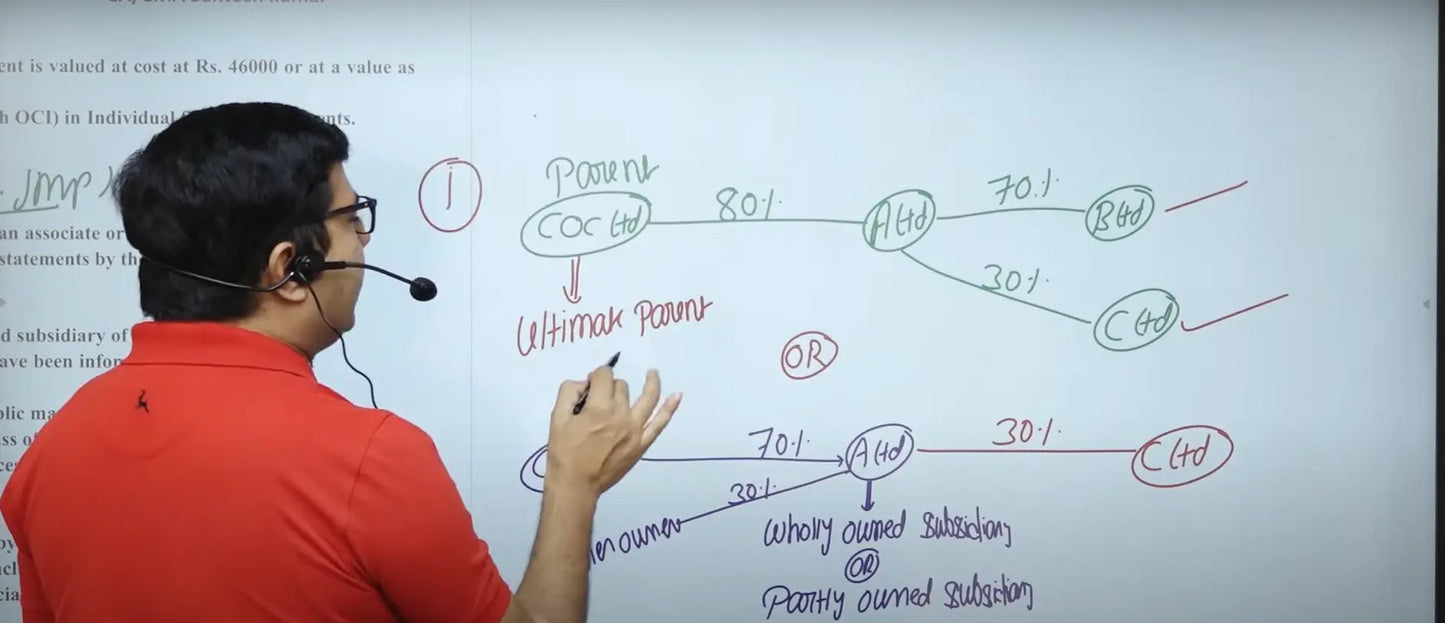 ent is valued at cost at Rs. 46000 or at a value as
h OCI) in Individual
nts.
Imp
an associate or
statements by th
d subsidiary of
ave been infor
olic ma
ss of
1
Parent
COC Ltd
80%
A Ltd
70%
B Ltd
30%
C Ltd
Ultimate Parent
OR
70%
A Ltd
30%
C Ltd
30%
owner
Wholly owned subsidiary
OR
Partly owned subsidiary